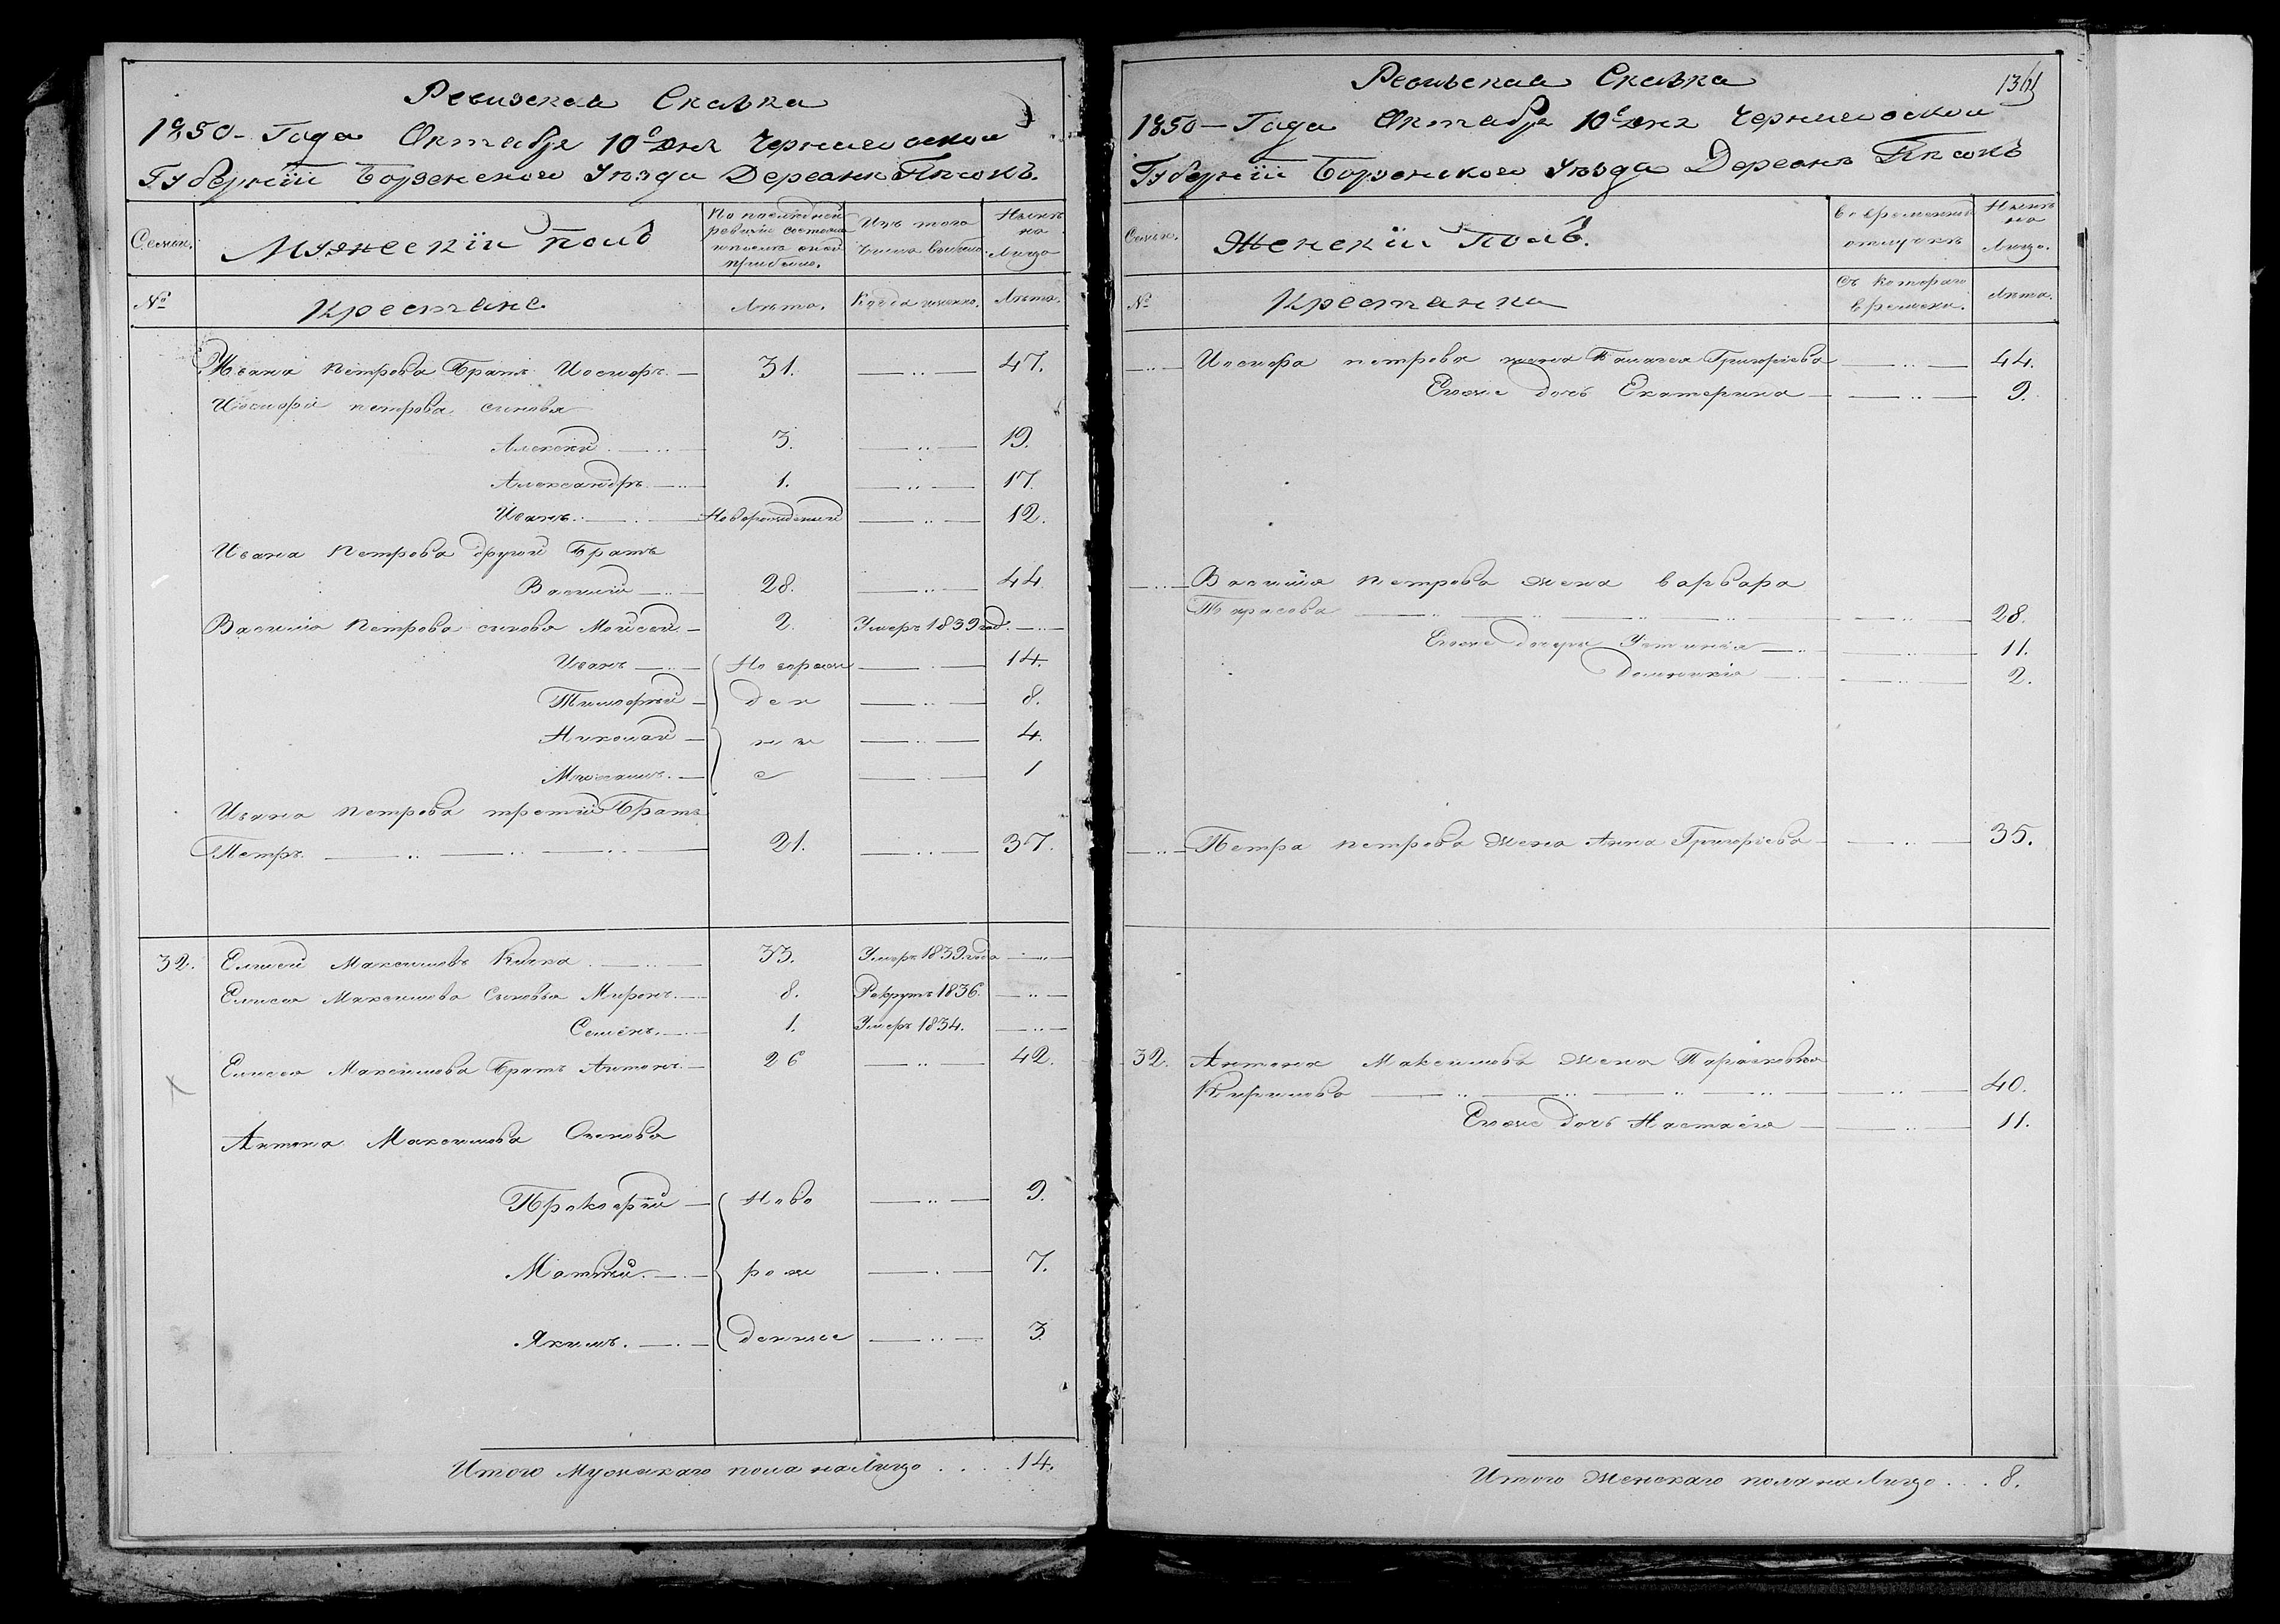 Ревизская Сказка
1850 – Года Октября 10го дня Черниговской
Губернїи Борзенского Уѣзда Деревни Пѣсокъ.
Семьи.
Мужескїй полъ
По послѣдней ревизіи состояло и послѣ оной прибыло.
Изъ того числа выбыло
Нынѣ на Лицо
№
Крестьяне
Лѣта.
Когда именно.
Лѣта.
Ивана Петрова Братъ Иосифъ. — 31. — 47.
Иосифа петрова сыновья
Алексѣй — 3. — 19.
Александръ — 1. — 17.
Иванъ. — Новорожденный — 12.
Ивана Петрова другой Братъ
Василій — 28. — 44.
Василія Петрова сыновья Мойсей. — 2. Умеръ 1839 год. —
Иванъ — Новорож — 14.
Тимофѣй — ден — 8.
Николай — ны — 4.
Михаилъ. — е — 1
Ивана Петрова третій Братъ
Петръ. — 21. — 37.
32. Елисей Максимовъ Киска — 33. Умеръ 1839 года —
Елисея Максимова Сыновья Миронъ. — 8. Рекрутъ 1836. —
Семёнъ. — 1. Умеръ 1834. —
Елисея Максимова Братъ Антонъ. — 26 — 42.
Антона Максимова Сыновья
Прокофій — Ново — 9.
Матвѣй. — рож — 7.
Якимъ. — денные — 3
Итого Мужескаго пола на Лицо . . . . 14.
Ревизская Сказка
1850 – Года Октября 10го дня Черниговской
Губернїи Борзенского Уѣзда Деревни Пѣсокъ
Семьи.
Женскїй Полъ.
во временной отлучкѣ
Нынѣ на Лицо.
№
Крестьянки
Съ котораго времени.
Лѣта.
— Иосифа петрова жена Григоріева — 44.
Егоже дочь Екатерина — 9.
— Василія Петрова жена варвара
Тарасова — 28.
Егоже дочери Устинія — 11.
Домникія — 2.
— Петра петрова жена Анна Григоріева — 35.
32. Антона Максимова жена Парасковья
Кирилова — 40.
Егоже дочь Настасія — 11.
Итого женскаго пола на Лицо . . . 8.